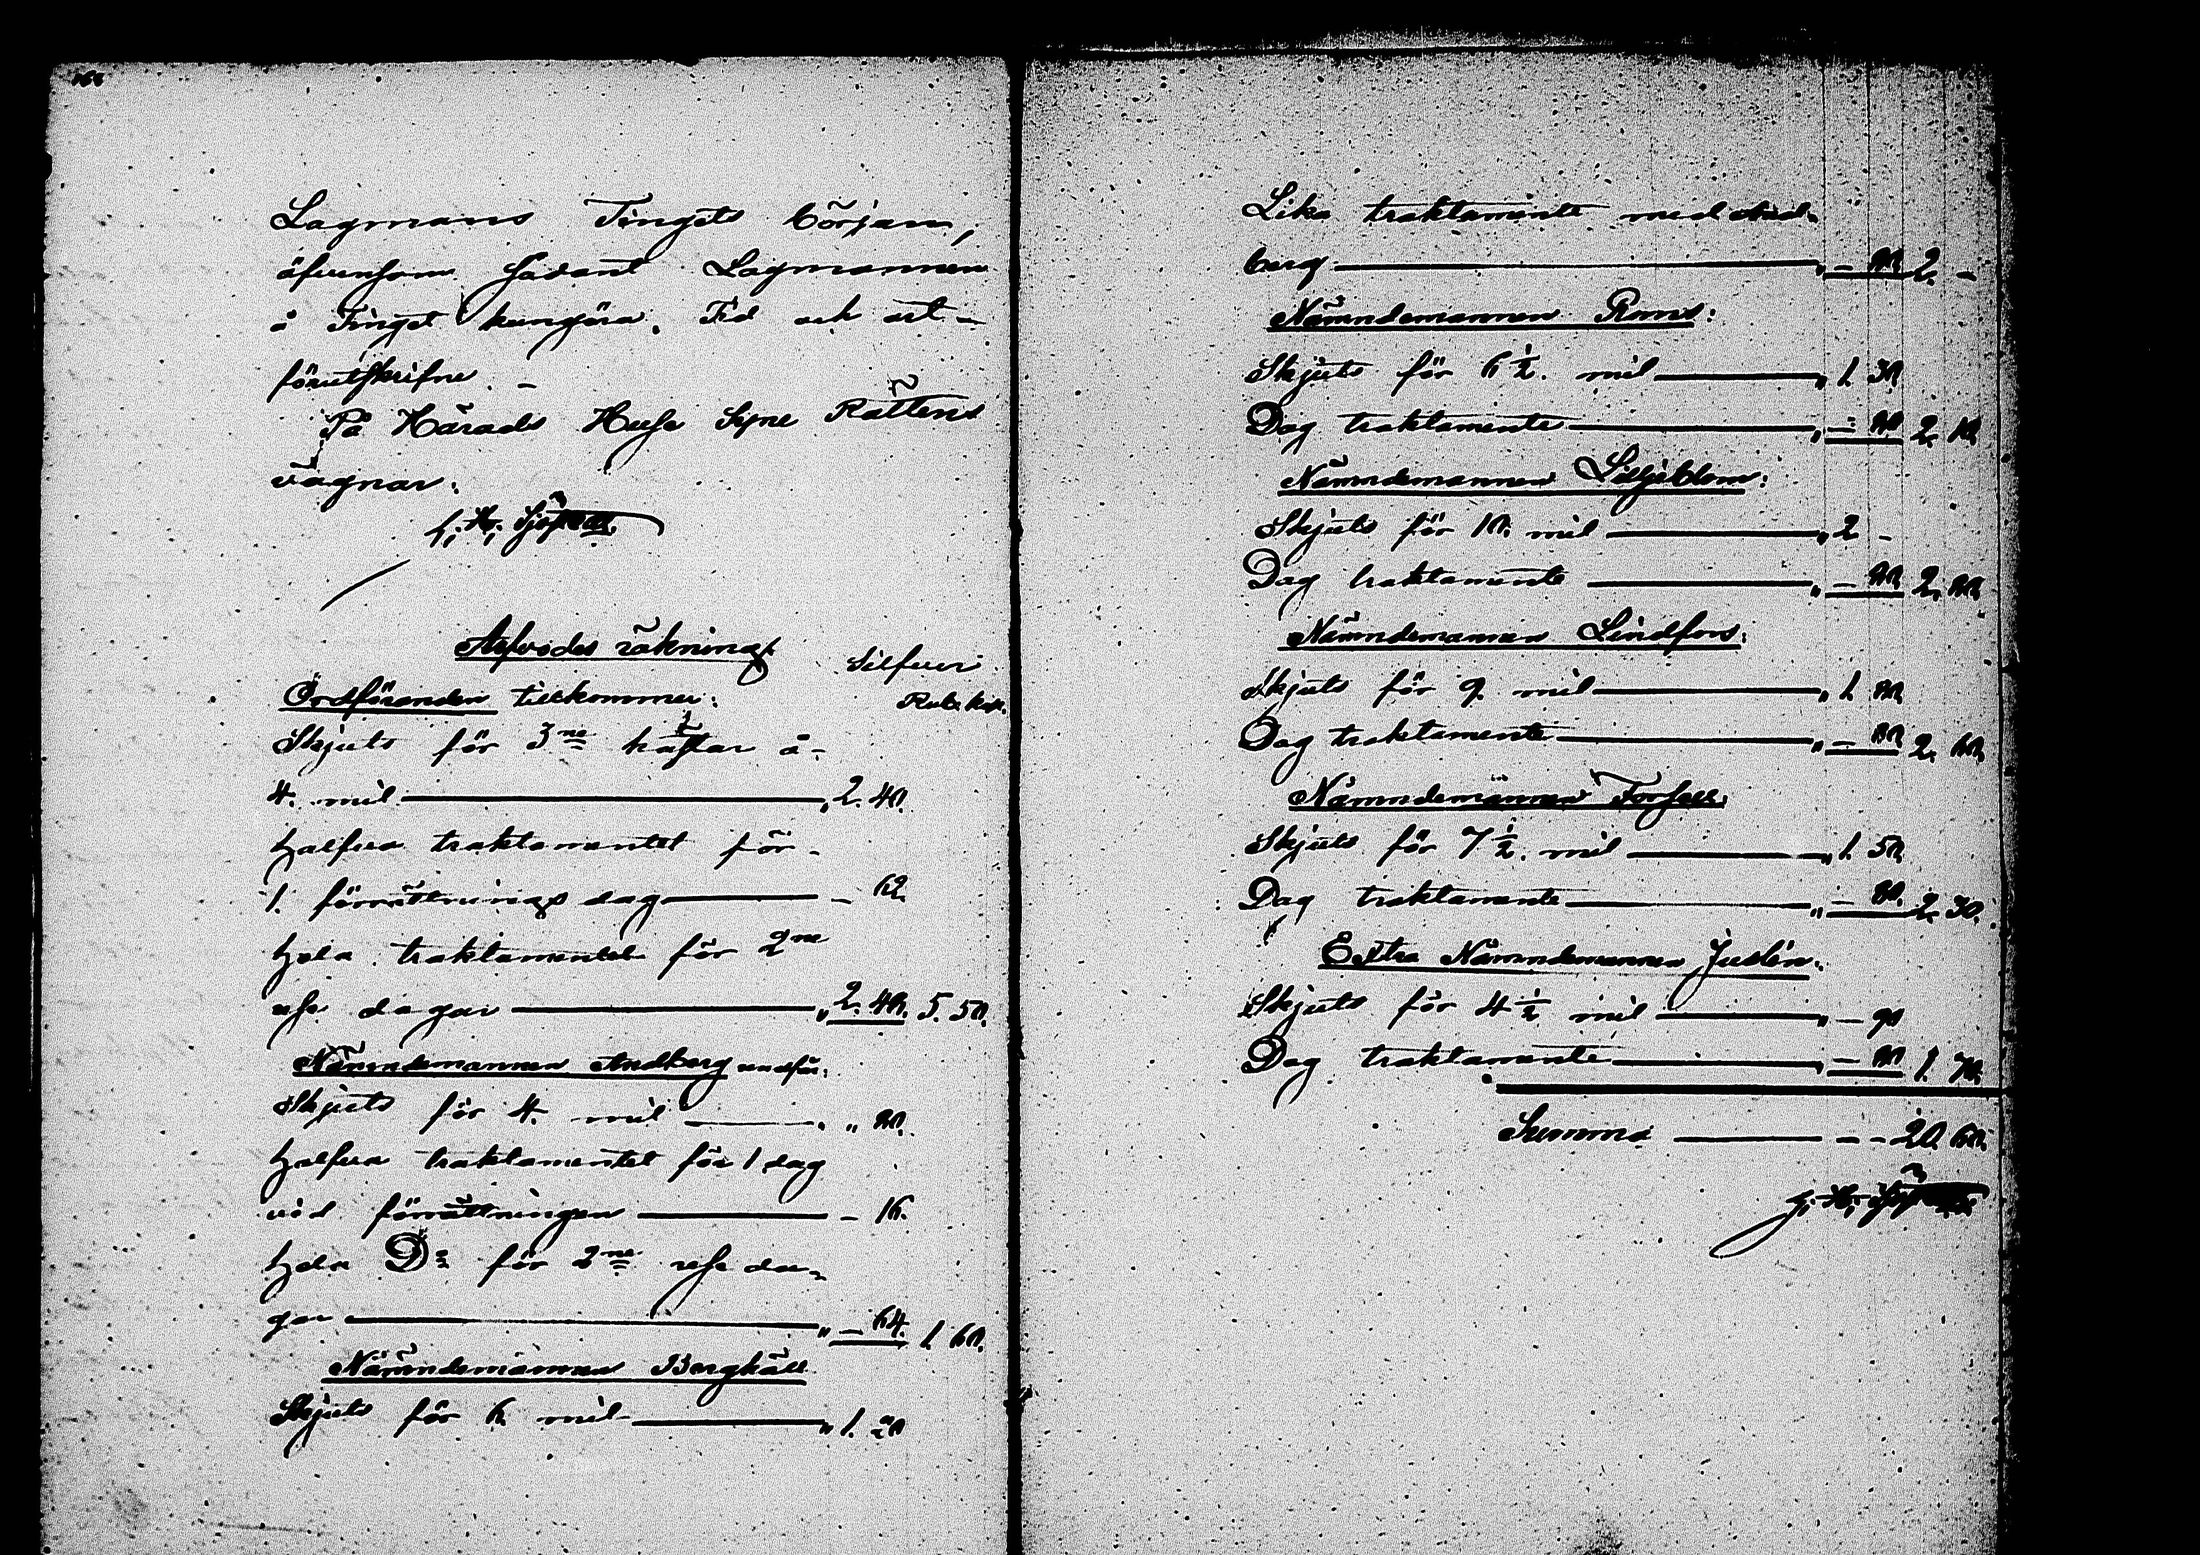 Lagmans Tingets början,
äfvensom sådant Lagmannen
å Tinget kungöra. Tid och ort
förutskrifne. –
På Härads Huse Syne Rättens
vägnar:
Arfvodes räkning
Silfver
Ordföranden tillkommer:
Rub. kop.
Skjuts för 3ne hästar à
4. mil — „ 2. 40.
Halfva traktamentet för
1. förrättnings dag — – 62.
Hela traktamentet för 2ne
rese dagar — „ 2. 40. 5. 50.
Nämndemannen Andberg
Skjuts för 4. mil — „ 80.
Halfva traktamentet för 1 dag
vid förrättningen — – 16.
Hela Do för 2ne rese da-
gar — „ – 64. 1. 60.
Nämndemannen Bergkäll
Skjuts för 6. mil — „ 1. 20
Lika traktamente med And-
berg — „ – 80 2. –
Nämndemannen Roms:
Skjuts för 6 1/2. mil — „ 1. 30
Dag traktamente — „ – 80 2. 10.
Nämndemannen Liljeblom:
Skjuts för 10. mil — „ 2 –
Dag traktamente — „ – 80 2. 80.
Nämndemannen Lindfors:
Skjuts för 9. mil — „ 1. 80.
Dag traktamente — „ – 80 2. 60.
Nämndemannen Forsell:
Skjuts för 7 1/2. mil — „ 1. 50.
Dag traktamente — „ – 80. 2. 30.
Extra Nämndemannen Juslin:
Skjuts för 4 1/2 mil — „ – 90
Dag traktamente — „ – 80 1. 70.
Summa — – – 20. 60.